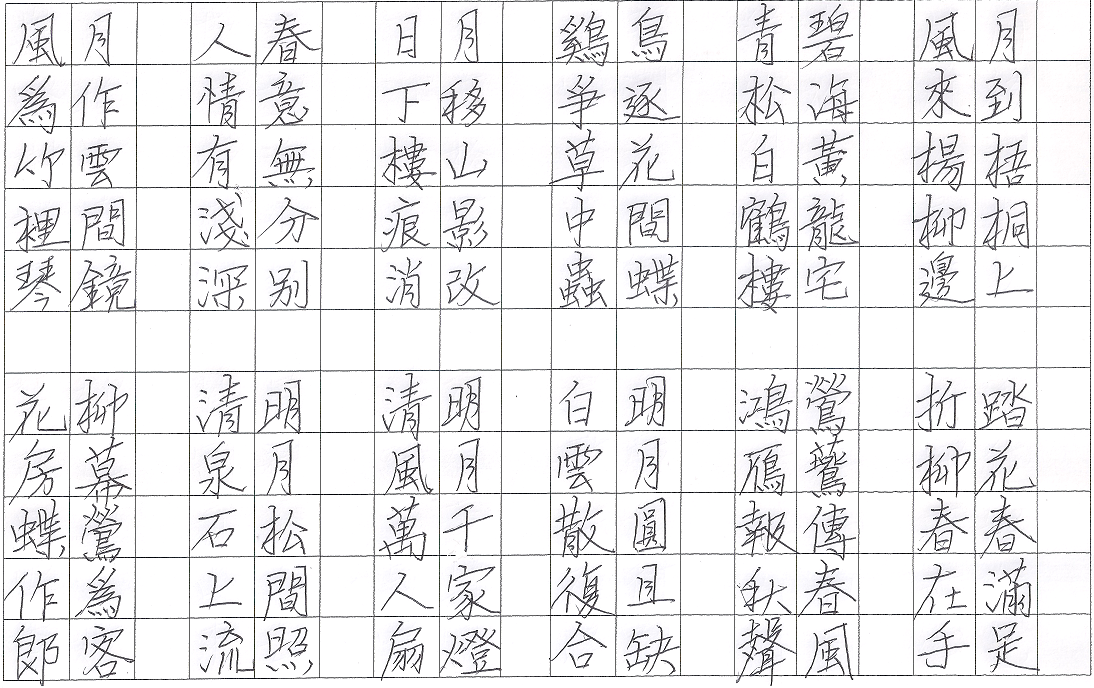 月到梧桐上
風來楊柳邊
碧海黃龍宅
青松白鶴樓
鳥逐花間蝶
鷄爭草中蟲
月移山影改
日下樓痕消
春意無分別
人情有淺深
月作雲間鏡
風爲竹裡琴
踏花春滿足
折柳春在手
鶯鷰傳春風
鴻鴈報秋聲
明月圓且缺
白雲散復合
明月千家燈
清風萬人扇
明月松間照
清泉石上流
柳幕鶯爲客
花房蝶作郎